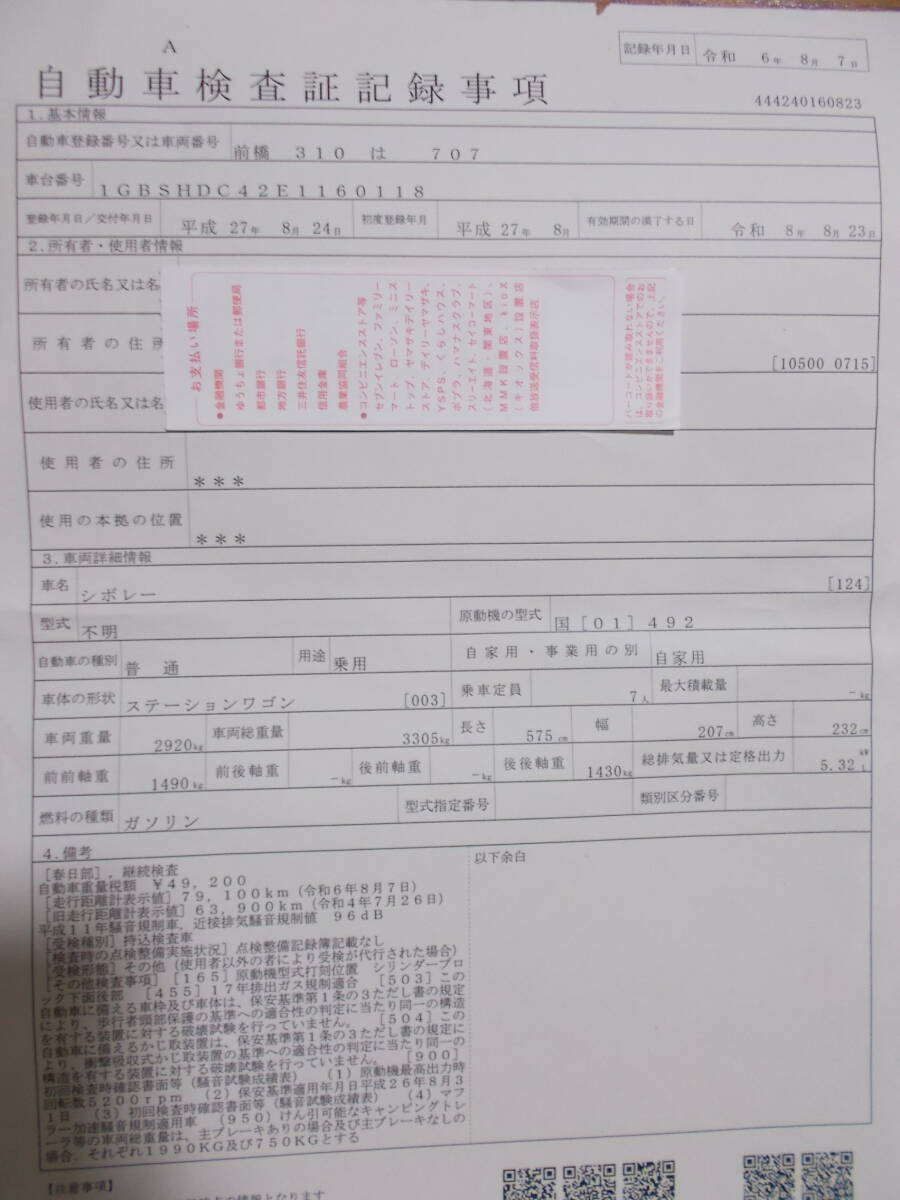 A
記録年月日 令和 6年 8月 7日
自動車検査証記録事項
444240160823
1.基本情報
自動車登録番号又は車両番号 前橋 310 は 707
車台番号 1GBSHDC42E1160118
登録年月日/交付年月日 平成 27年 8月 24日 初度登録年月 平成 27年 8月 有効期間の満了する日 令和 8年 8月 23日
2.所有者・使用者情報
所有者の氏名又は名
所有者の住所
[10500 0715]
使用者の氏名又は名
お支払い場所
●金融機関
ゆうちょ銀行または郵便局
都市銀行
地方銀行
三井住友信託銀行
信用金庫
農業協同組合
●コンビニエンスストア等
セブンイレブン、ファミリー
マート、ローソン、ミニス
トップ、ヤマザキデイリー
ストア、デイリーヤマザキ、
YSPS、くらしハウス、
ポプラ、ハマナスクラブ、
スリーエイト、セイコーマート
(北海道・関東地区)、
MMK設置店、kiosK
(キオックス)設置店
他放送受信料取扱表示店
バーコードが読み取れない場合
は、コンビニエンスストアでのお
取り扱いができませんので、上記
の金融機関をご利用ください。
使用者の住所 ***
使用の本拠の位置 ***
3.車両詳細情報
車名 シボレー [124]
型式 不明 原動機の型式 国[01]492
自動車の種別 普通 用途 乗用 自家用・事業用の別 自家用
車体の形状 ステーションワゴン [003] 乗車定員 7人 最大積載量 -kg
車両重量 2920kg 車両総重量 3305kg 長さ 575cm 幅 207cm 高さ 232cm
前前軸重 1490kg 前後軸重 -kg 後前軸重 -kg 後後軸重 1430kg 総排気量又は定格出力 5.32 kW L
燃料の種類 ガソリン 型式指定番号 類別区分番号
4.備考
以下余白
[春日部],継続検査
自動車重量税額 ¥49,200
[走行距離計表示値]79,100km(令和6年8月7日)
[旧走行距離計表示値]63,900km(令和4年7月26日)
平成11年騒音規制車,近接排気騒音規制値 96dB
[受検種別]持込検査車
[検査時の点検整備実施状況]点検整備記録簿記載なし
[受検形態]その他(使用者以外の者により受検が代行された場合)
[その他検査事項][165]原動機型式打刻位置 シリンダーブロ
ック下面後部 [455]17年排出ガス規制適合 [503]この
自動車に備える車枠及び車体は、保安基準第1条の3ただし書の規定
により、歩行者頭部保護の基準への適合性の判定に当たり同一の構造
を有する装置に対する破壊試験を行っていません。 [504]この
自動車に備えるかじ取装置は、保安基準第1条の3ただし書の規定に
より、衝撃吸収式かじ取装置の基準への適合性の判定に当たり同一の
構造を有する装置に対する破壊試験を行っていません。 [900]
初回検査時確認書面等(騒音試験成績表) (1)原動機最高出力時
回転数5200rpm (2)保安基準適用年月日平成26年8月3
1日 (3)初回検査時確認書面等(騒音試験成績表) (4)マフ
ラー加速騒音規制適用車 (950)けん引可能なキャンピングトレ
ーラ等の車両総重量は、主ブレーキありの場合及び主ブレーキなしの
場合、それぞれ1990KG及び750KGとする
【注意事項】